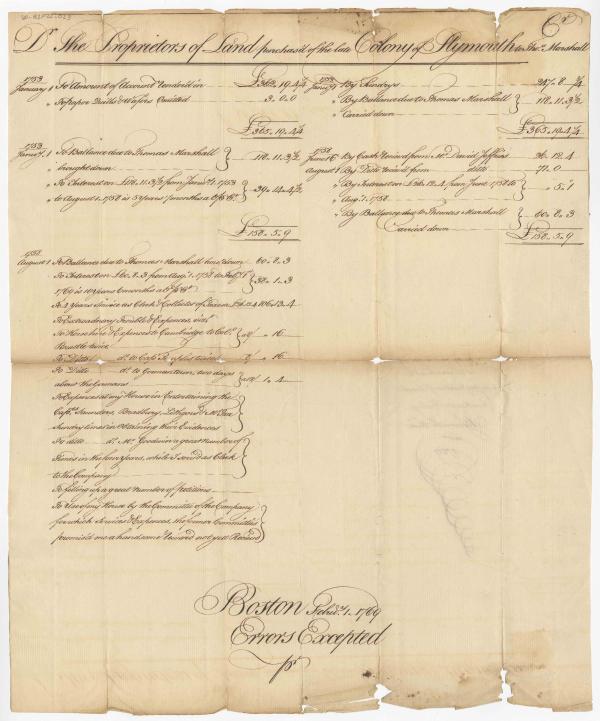 Dr The Proprietors of Land purchas'd of the late Colony of Plymouth to Thos. Marshall Cr
1753
January 1 To Amount of Account render'd in £362.19.4¼
To paper Quills & Wafers Omitted 3.0.0
£365.19.4¼
1753
By Sundrys 247.8.¾
By Ballance due to Thomas Marshall
Carried down 118.11.3½
£365.19.4¼
1753
Jany. 1 To Ballance due to Thomas Marshall
brought down 118.11.3½
To Interest on £118.11.3½ from Jany. 1. 1753
to August 1. 1758 is 5 Years 7 months a 6 P Ct. 39.14.4½
£158.5.9
1758
June 16 By Cash receiv'd from Mr. David Jeffries 26.12.4
August 1 By Ditto receiv'd from ditto 71.0
By Interest on £26.12.4 from June 1758 to
Augt. 1. 1758 5.1
By Ballance due to Thomas Marshall
Carried down 60.8.3
£158.5.9
1758
August 1 To Ballance due to Thomas Marshall bro't down 60.8.3
To Interest on £60.8.3 from Augt. 1. 1758 to Feby. 1
1769 is 10 Years 6 months a 6 P Ct. 38.1.3
To Years Service as Clerk & Collector of Taxes 106.13.4
To Extraordinary Trouble & Expences, vizt.
To Horse hire & Expences to Cambridge to Colo.
Brattle twice 16
To Ditto do. to Capt. twice 16
To Ditto do. to Germantown two days
about the Germans 1.4
To Expences at my House in Entertaining the
Capts. Saunders, Bradbury, Lithgow & Mr.
Sundry times in obtaining their Evidences
To ditto do. Mr. Goodwin a great number of
Times in the four Years, while I serv'd as Clerk
to the Company
To filling up a great number of petitions
To Use of my House by the Committee of the Company
for which Services & Expences, the former Committee
promis'd me a handsome reward not yet Receiv'd
Boston Febry. 1. 1769
Errors Excepted
pr